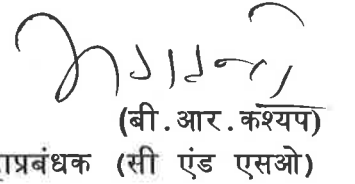 (बी.आर.कश्यप)
ाप्रबंधक (सी एंड एसओ)